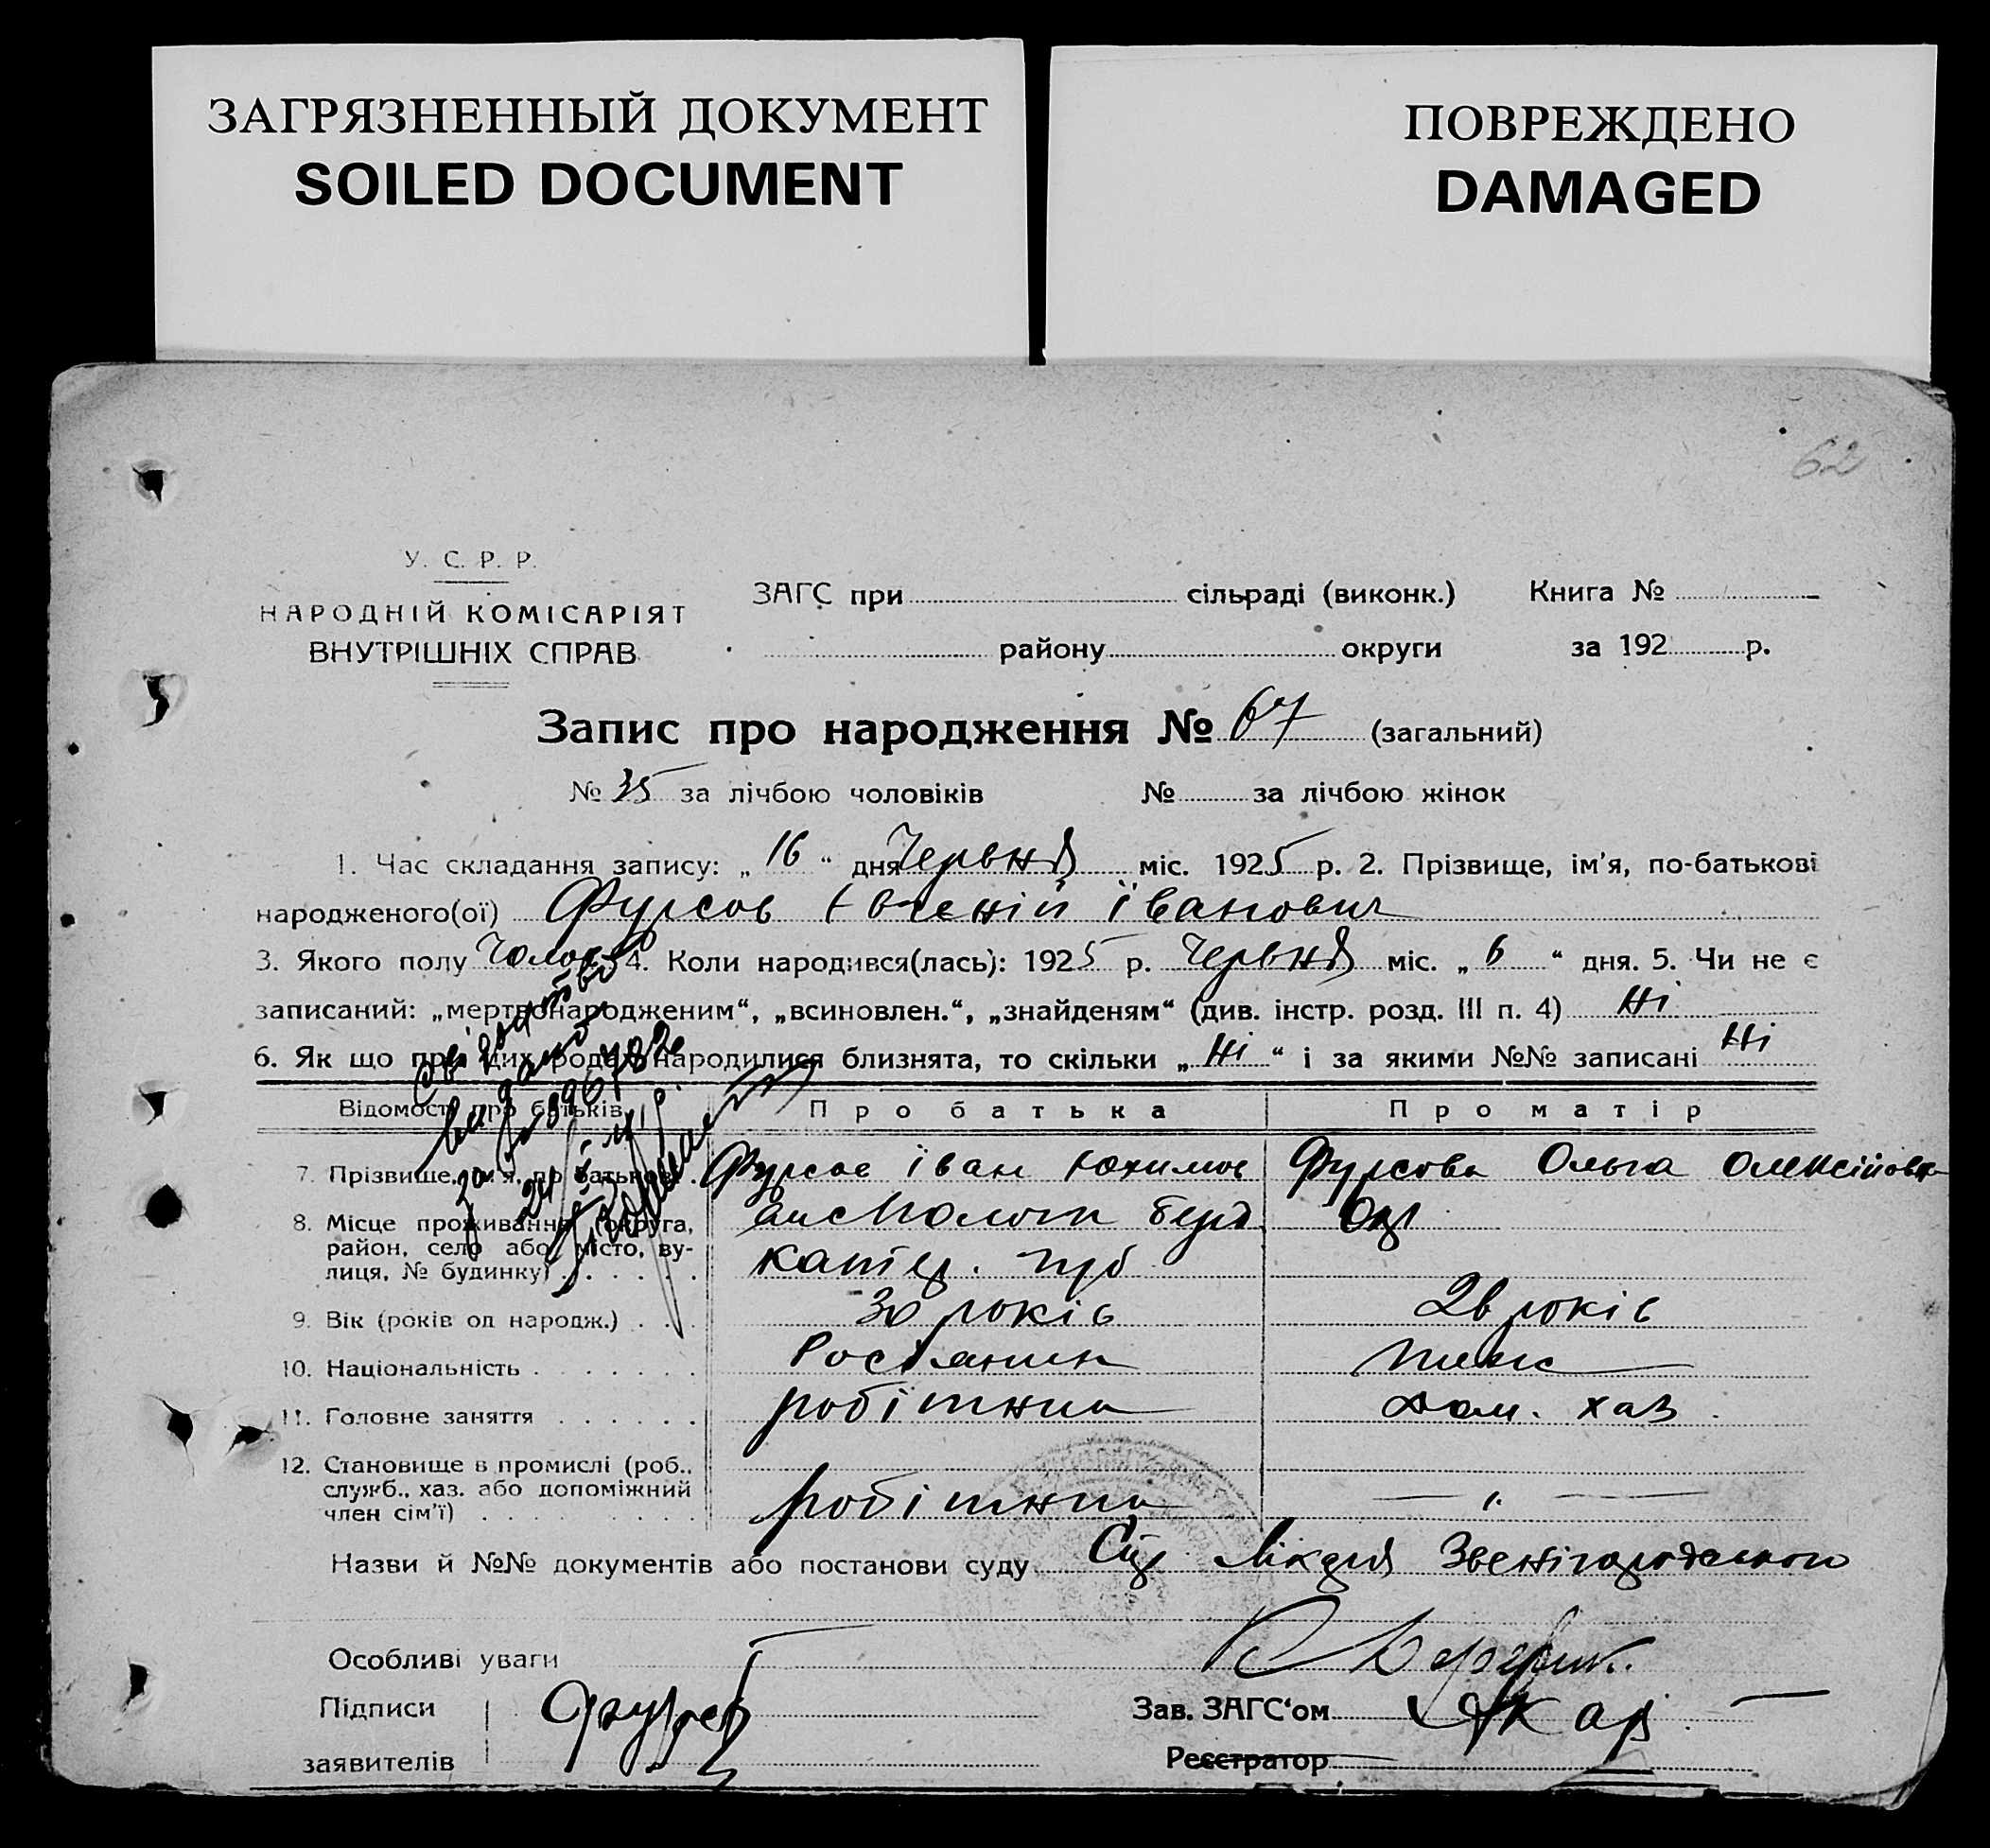 ЗАГРЯЗНЕННЫЙ ДОКУМЕНТ
SOILED DOCUMENT
ПОВРЕЖДЕНО
DAMAGED
62
У. С. Р. Р.
НАРОДНІЙ КОМІСАРІЯТ
ВНУТРІШНІХ СПРАВ
ЗАГС при сільраді (виконк.) Книга №
району округи за 192 р.
Запис про народження № 67 (загальний)
№ 35 за лічбою чоловіків № за лічбою жінок
1. Час складання запису: „ 16 “ дня Червня міс. 1925 р. 2. Прізвище, ім'я, по-батькові
народженого(ої) Фурсов Євгеній Іванович
3. Якого полу Чолов 4. Коли народився(лась): 1925 р. Червня міс. „ 6 “ дня. 5. Чи не є
записаний: „мертвонародженим“, „всиновлен.“, „знайденям“ (див. інстр. розд. III п. 4) Ні
6. Як що при цих родах народилися близнята, то скільки „ Ні “ і за якими №№ записані Ні
Відомості про батьків Про батька Про матір
7. Прізвище, ім'я, по батькові Фурсов Іван Юхимов Фурсова Ольга Олексіївна
8. Місце проживання (округа,
район, село або місто, ву-
лиця, № будинку)
катер. губ
9. Вік (років од народж.) 30 років 26 років
10. Національність Росіянин
11. Головне заняття робітник дом. хаз.
12. Становище в промислі (роб.,
служб., хаз. або допоміжний
член сім'ї) робітник
Назви й №№ документів або постанови суду Лікаря Звенігородського
Особливі уваги
Підписи Фурсов Зав. ЗАГС'ом
заявителів Реєстратор